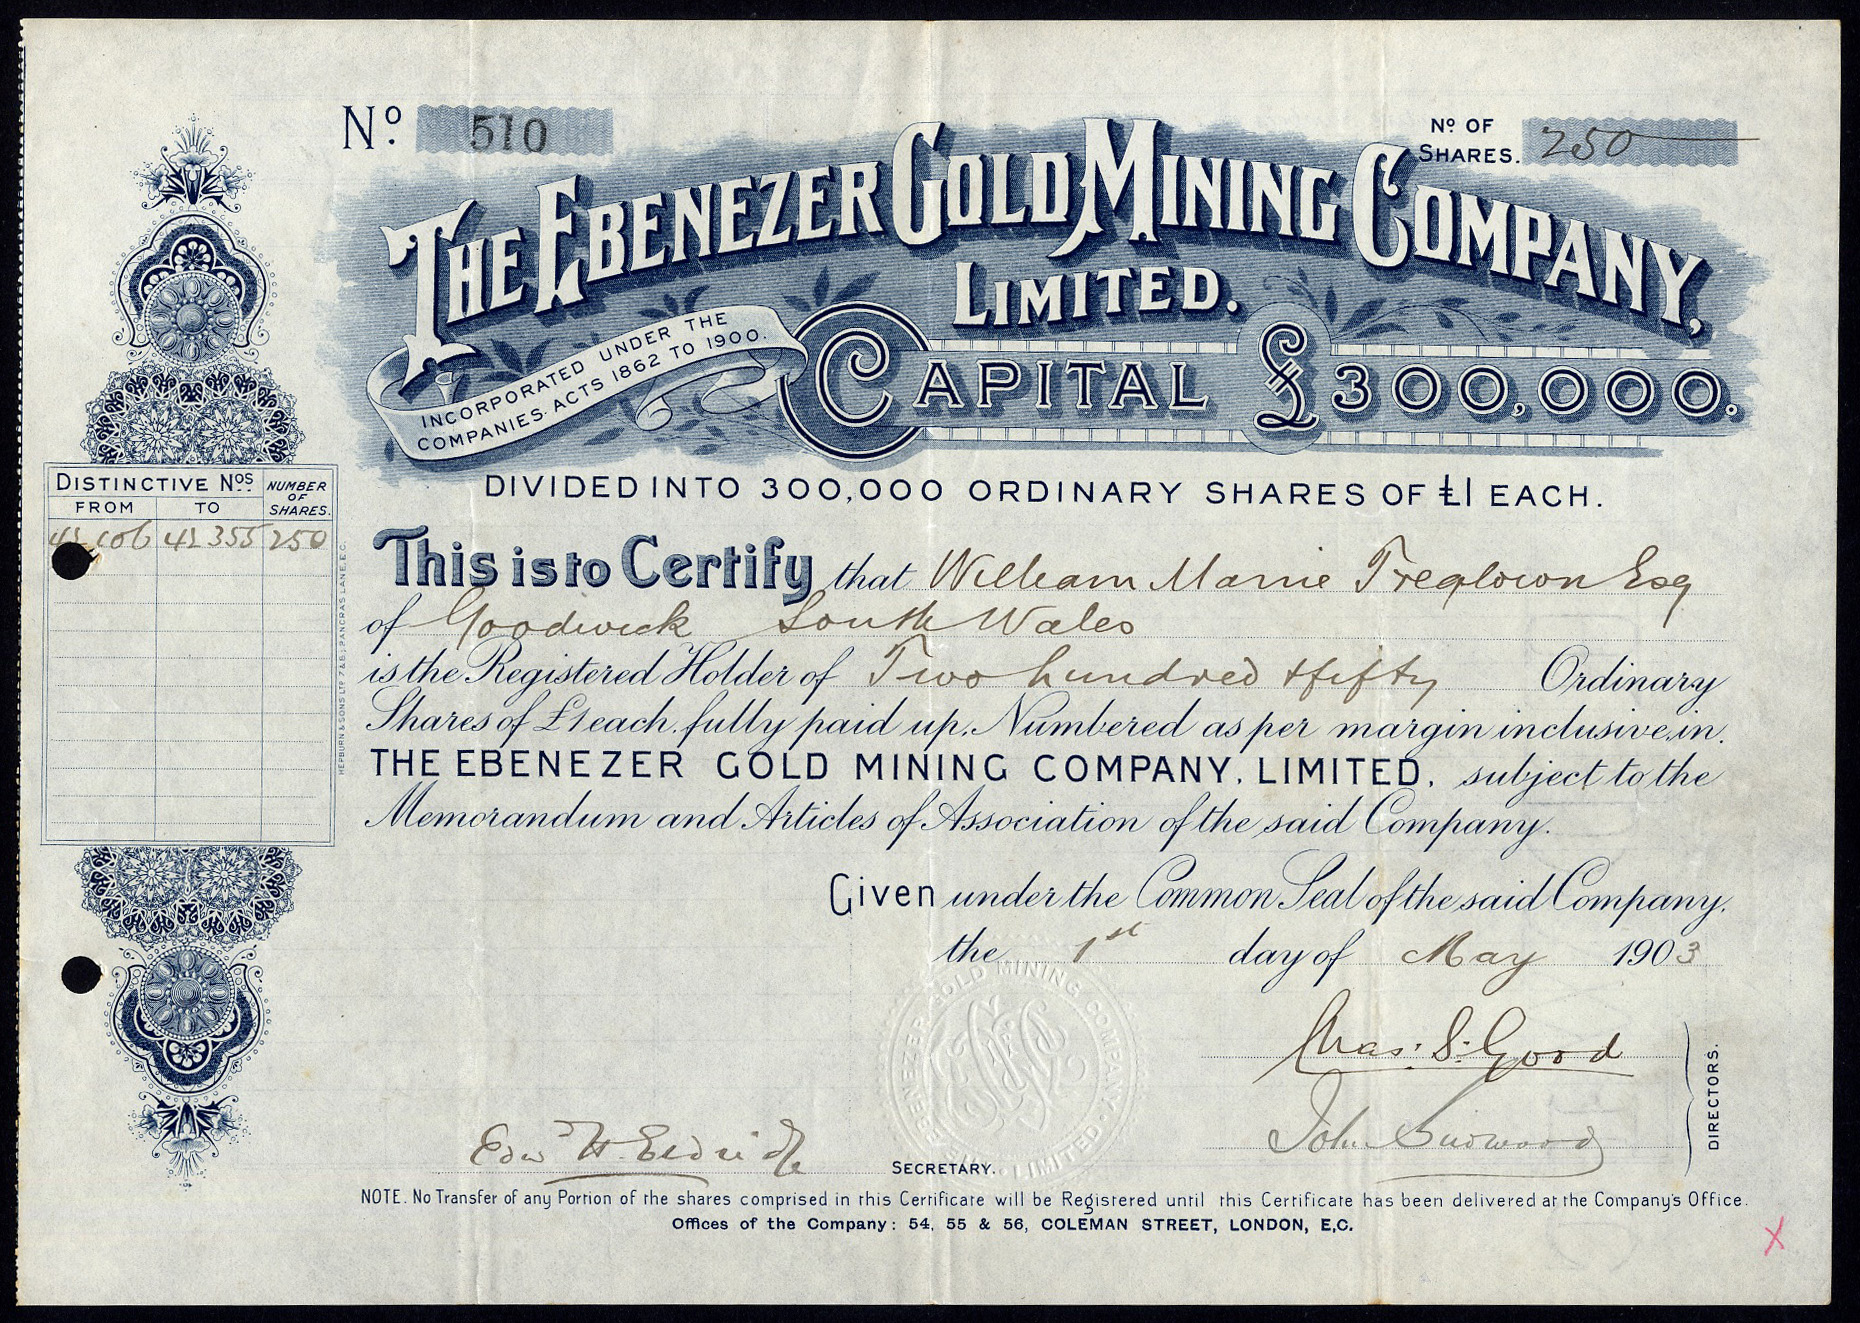 Nº. 510
Nº OF SHARES. 250
THE EBENEZER GOLD MINING COMPANY,
LIMITED.
INCORPORATED UNDER THE
COMPANIES ACTS 1862 TO 1900.
CAPITAL £300,000.
DIVIDED INTO 300,000 ORDINARY SHARES OF £1 EACH.
DISTINCTIVE NOS. NUMBER OF SHARES.
FROM TO
355 250
HEPBURN & SONS LTD 7 & 8, PANCRAS LANE, E.C.
This is to Certify that William Treglown Esq
of Goodwick South Wales
is the Registered Holder of Two hundred & fifty Ordinary
Shares of £1 each, fully paid up, Numbered as per margin inclusive, in
THE EBENEZER GOLD MINING COMPANY, LIMITED, subject to the
Memorandum and Articles of Association of the said Company.
Given under the Common Seal of the said Company,
the 1st day of May 1903
EBENEZER GOLD MINING COMPANY LIMITED
Chas. S. Good
John
DIRECTORS.
Edw H. Eldridge
SECRETARY.
NOTE. No Transfer of any Portion of the shares comprised in this Certificate will be Registered until this Certificate has been delivered at the Company's Office.
Offices of the Company: 54, 55 & 56, COLEMAN STREET, LONDON, E.C.
X